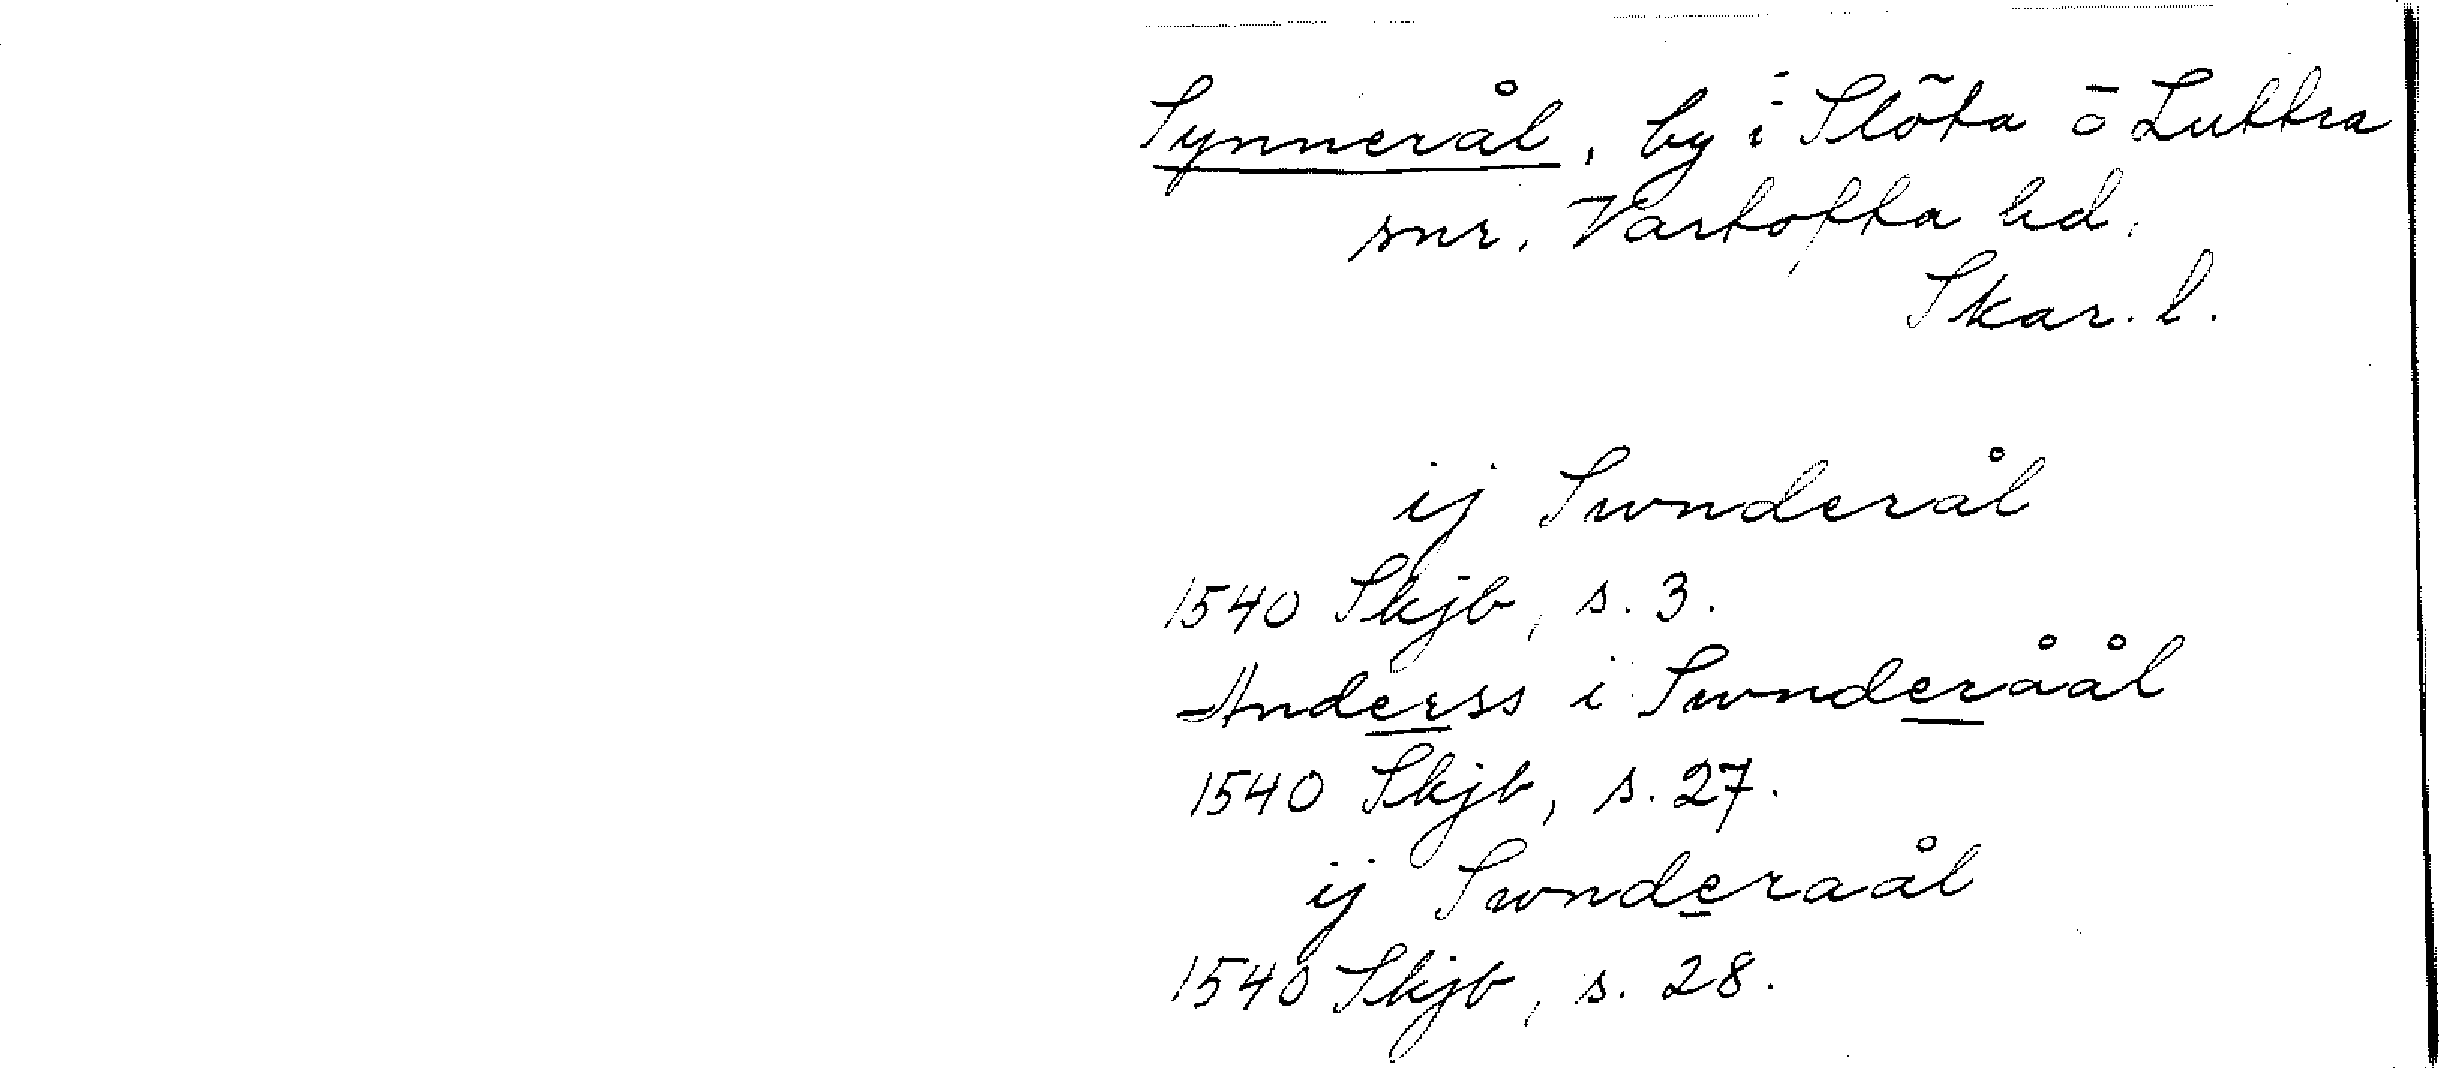 Synnerål, by i Slöta o Luttra
snr, Vartofta hd,
Skar. l.
ij Swnderål
1540 Skjb, s. 3.
Anderss i Swnderåål
1540 Skjb, s. 27.
ij Swnderaål
1540 Skjb, s. 28.